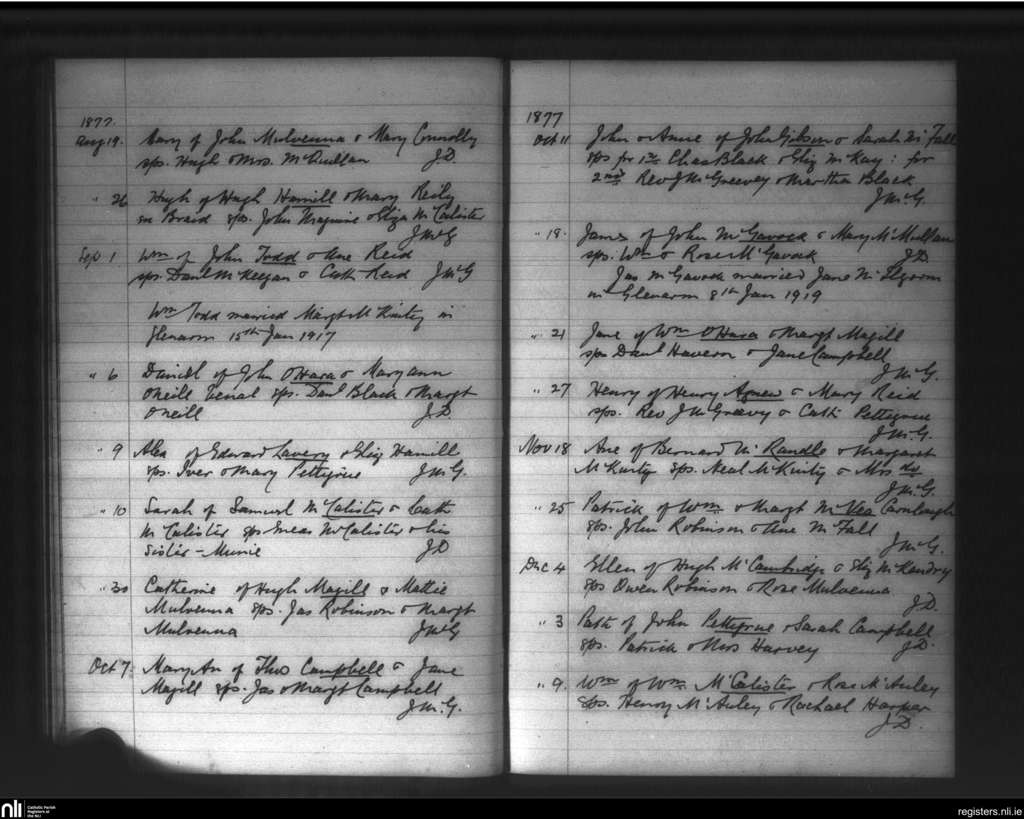 1877.
Aug 19. Mary of John Mulvenna & Mary Connolly
sps. Hugh & Mrs. McQuillan J.D.
" 26 Hugh of Hugh Hamill & Mary Reily
in Braid sps. John Maguire & Eliza McCalister
J McG
Sep 1 Wm of John Todd & Ane Reid
sps. Danl McKeegan & Cath Reid J McG
Wm Todd married Margt McKinty in
Glenarm 15th Jan 1917
" 6 Daniel of John O'Hara & Mary ann
O'Neill sps. Danl Black & Margt
O'Neill J.D
" 9 Alex of Edward Lavery & Eliz Hamill
sps. Iver & Mary Pettigrue J McG.
" 10 Sarah of Samuel McCalister & Cath
McCalister sps Eneas McCalister & his
Sister - Munie J D
" 30 Catherine of Hugh Magill & Mattie
Mulvenna sps. Jas Robinson & Margt
Mulvenna J McG
Oct 7 Mary An of Thos Campbell & Jane
Magill sps. Jas & Margt Campbell
J McG.
1877
Oct 11 John & Anne of John Gibson & Sarah McFall
sps for 1st Chas Black & Eliz McKay: for
2nd Rev J McGreevey & Martha Black
J McG.
" 18. James of John McGavock & Mary McMullan
sps. Wm & Rose McGavock J D
Jas McGavock married Jane
in Glenarm 8th Jan 1919
" 21 Jane of Wm O'Hara & Margt Magill
sps Danl Havern & Jane Campbell
J McG.
" 27 Henry of Henry Agnew & Mary Reid
sps. Rev J McGreevy & Cath Pettigrue
J McG.
Nov 18 Ane of Bernard McRandle & Margaret
McKinty sps. Neal McKinty & Mrs do
J McG.
" 25 Patrick of Wm & Margt McVea Carnlough
sps. John Robinson & Ane McFall
J McG.
Dec 4 Ellen of Hugh McCambridge & Eliz McKendry
sps Owen Robinson & Rose Mulvenna
J.D.
" 3 Patk of John Pettigrue & Sarah Campbell
sps. Patrick & Mrs Harvey J D.
" 9. Wm of Wm McCalister & Rose McAuley
sps. Henry McAuley & Rachael Harper
J D.
nli
Catholic Parish
Registers at
the NLI
registers.nli.ie